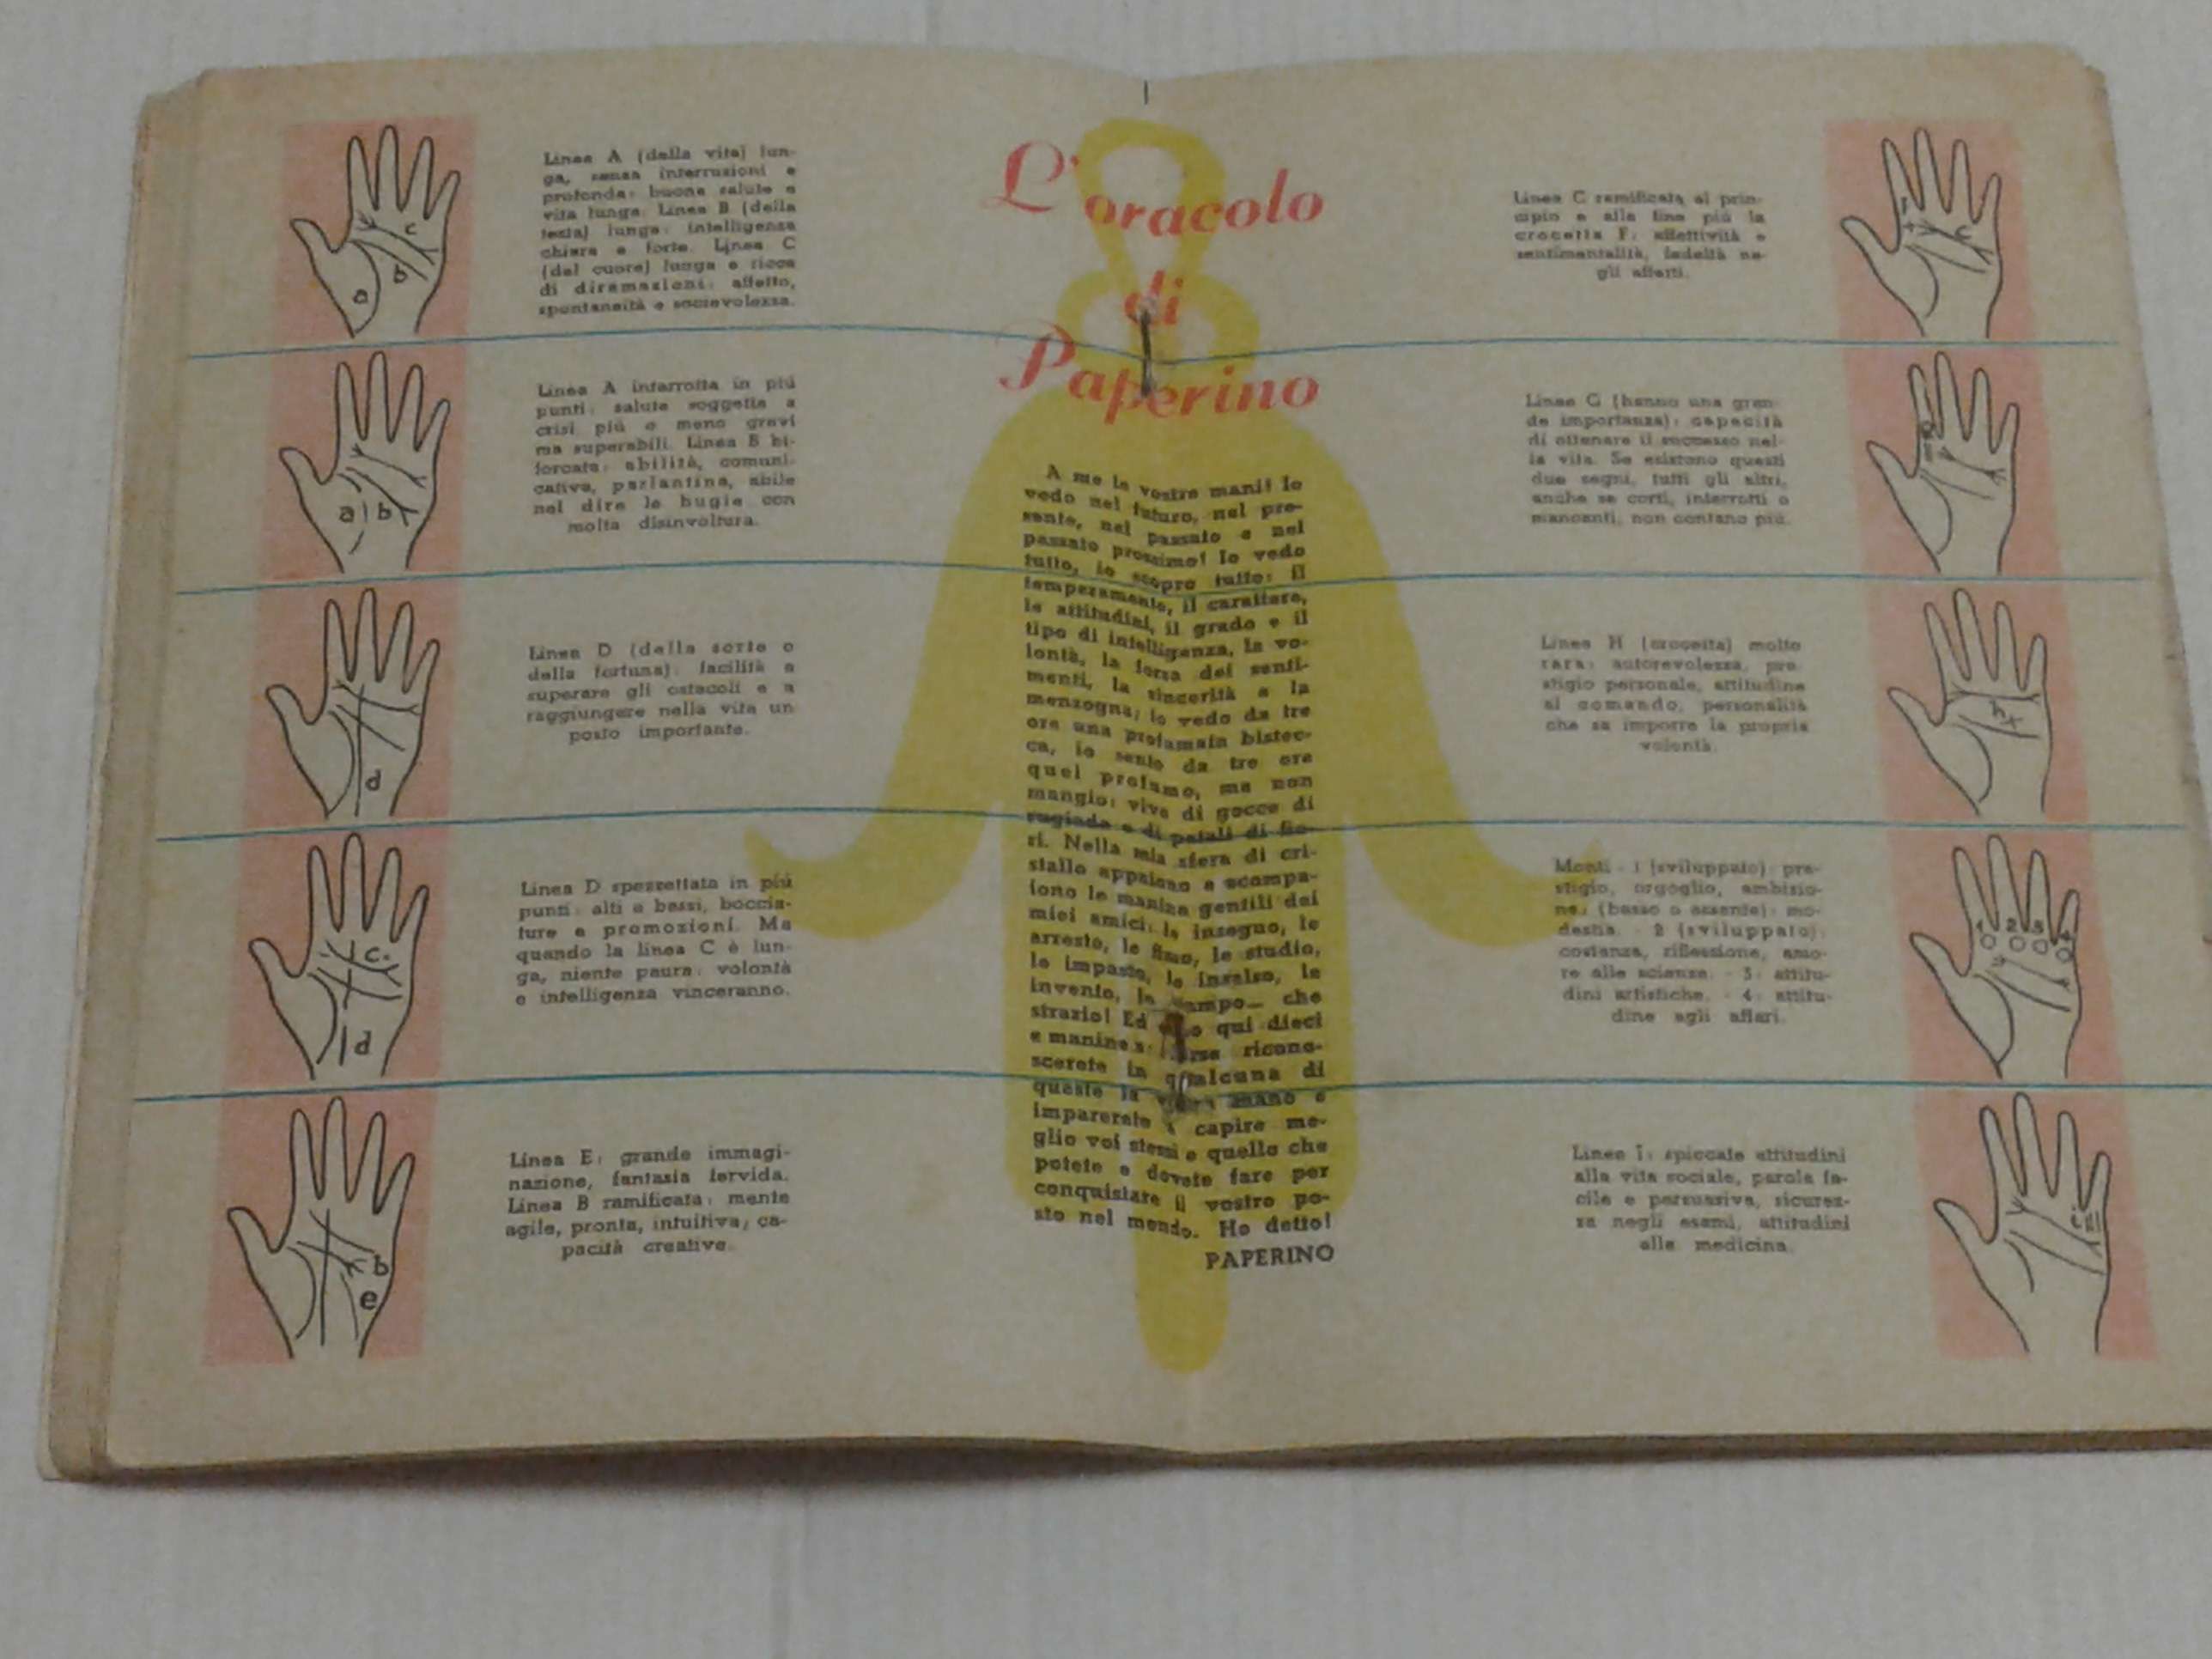 L'oracolo
di
Paperino
Linea A (della vita) lun-
ga, senza interruzioni e
profonda: buona salute e
vita lunga. Linea B (della
testa) lunga: intelligenza
chiara e forte. Linea C
(del cuore) lunga e ricca
di diramazioni: affetto,
spontaneità e socievolezza.
a
b
c
Linea A interrotta in più
punti: salute soggetta a
crisi più o meno gravi
ma superabili. Linea B bi-
forcata: abilità, comuni-
cativa, parlantina, abile
nel dire le bugie con
molta disinvoltura.
a b
Linea D (della sorte o
della fortuna): facilità a
superare gli ostacoli e a
raggiungere nella vita un
posto importante.
d
Linea D spezzettata in più
punti: alti e bassi, boccia-
ture e promozioni. Ma
quando la linea C è lun-
ga, niente paura: volontà
e intelligenza vinceranno.
c
d
Linea E: grande immagi-
nazione, fantasia fervida.
Linea B ramificata: mente
agile, pronta, intuitiva; ca-
pacità creative.
b
e
A me le vostre mani! Io
vedo nel futuro, nel pre-
sente, nel passato e nel
passato prossimo! Io vedo
tutto, io scopro tutto: il
temperamento, il carattere,
le attitudini, il grado e il
tipo di intelligenza, la vo-
lontà, la forza dei senti-
menti, la sincerità e la
menzogna; io vedo da tre
ore una profumata bistec-
ca, io sento da tre ore
quel profumo, ma non
mangio: vivo di gocce di
rugiada e di petali di fio-
ri. Nella mia sfera di cri-
stallo appaiono e scompa-
iono le manine gentili dei
miei amici: le inseguo, le
arresto, le fisso, le studio,
le impasto, le inselso, le
invento, le campo... che
strazio! Ed qui dieci
« manine »: ricono-
scerete in qualcuna di
queste la mano e
imparerete a capire me-
glio voi stessi e quello che
potete e dovete fare per
conquistare il vostro po-
sto nel mondo. Ho detto!
PAPERINO
Linea C ramificata al prin-
cipio e alla fine più la
crocetta F: affettività e
sentimentalità, fedeltà ne-
gli affetti.
Linee G (hanno una gran-
de importanza): capacità
di ottenere il successo nel-
la vita. Se esistono questi
due segni, tutti gli altri,
anche se corti, interrotti o
mancanti, non contano più.
Linea H (crocetta) molto
rara: autorevolezza, pre-
stigio personale, attitudine
al comando, personalità
che sa imporre la propria
volontà.
Monti - 1 (sviluppato): pre-
stigio, orgoglio, ambizio-
ne; (basso o assente): mo-
destia. - 2 (sviluppato):
costanza, riflessione, amo-
re alle scienze. - 3: attitu-
dini artistiche. - 4: attitu-
dine agli affari.
1 2 3 4
Linee I: spiccate attitudini
alla vita sociale, parola fa-
cile e persuasiva, sicurez-
za negli esami, attitudini
alla medicina.
i